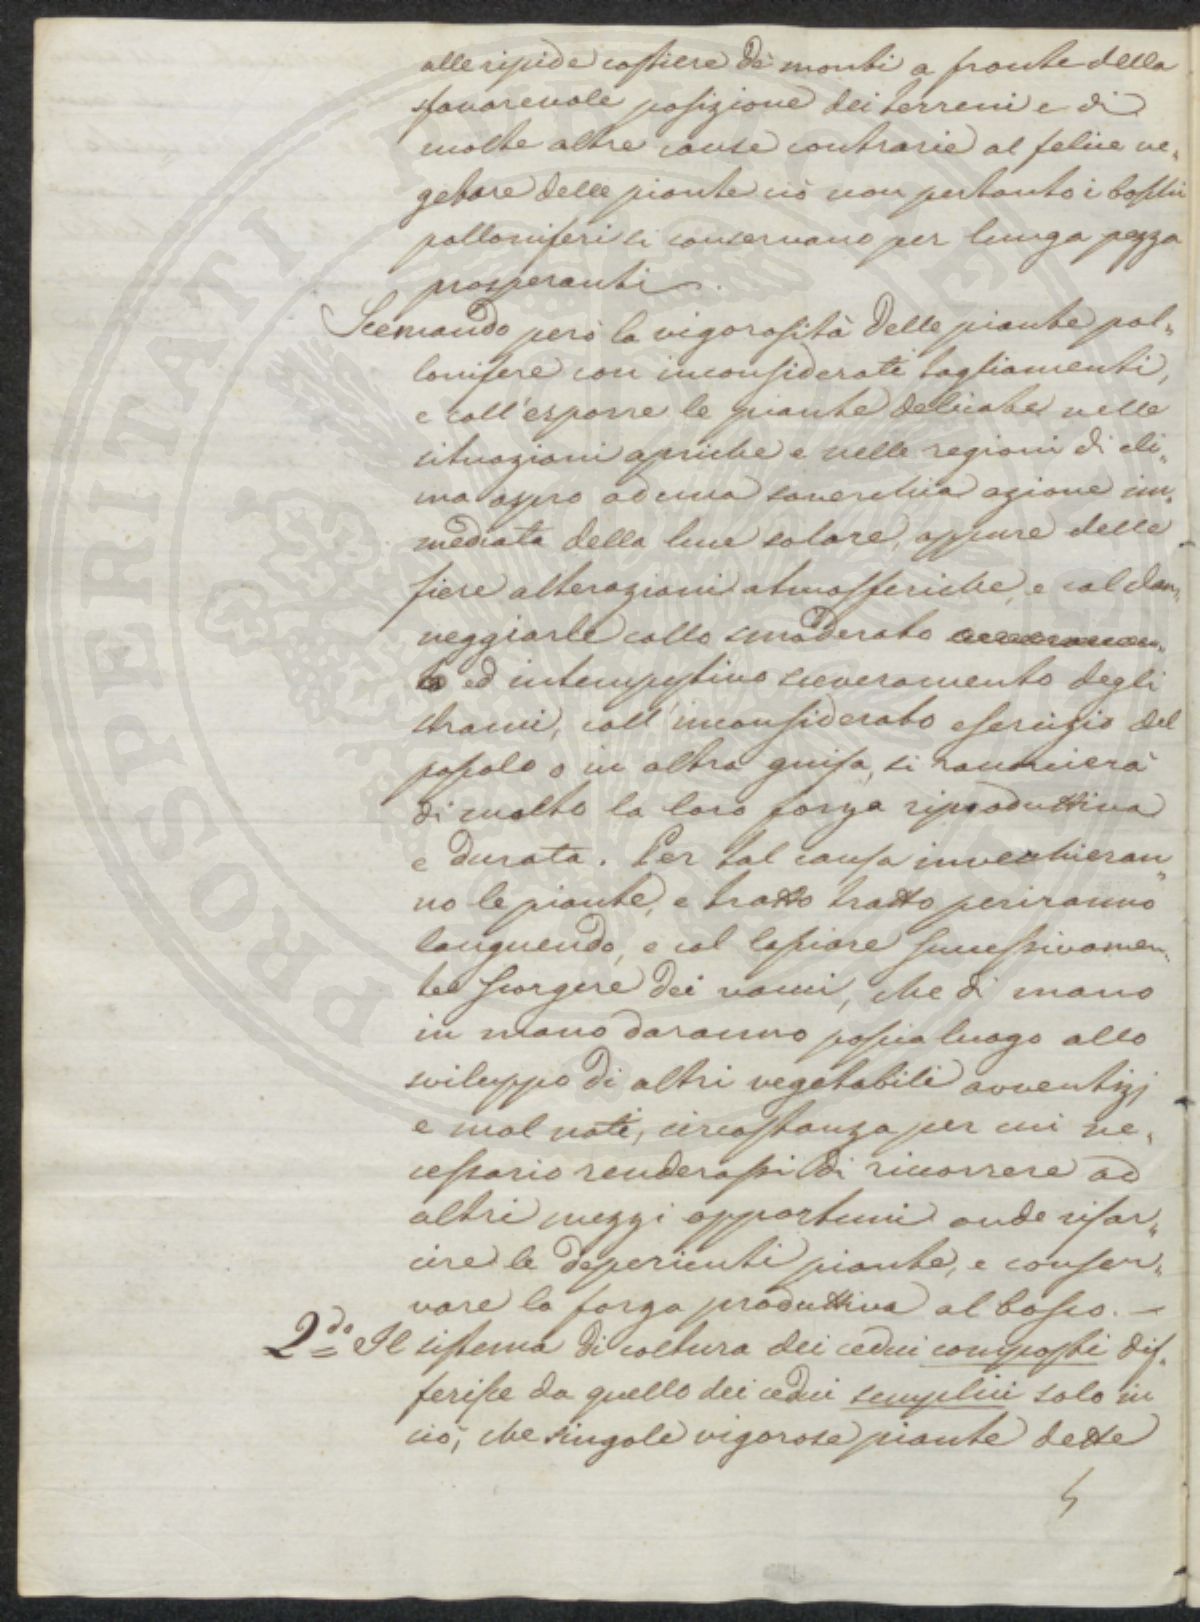 alle ripide costiere de' monti a fronte della
sfavorevole posizione dei terreni e di
molte altre cause contrarie al felice ve„
getare delle piante ciò non pertanto i boschi
polloniferi si conservano per lunga pezza
prosperanti.
Scemando però la vigorosità delle piante pol„
lonifere con inconsiderati tagliamenti,
e coll'esporre le piante delicate nelle
situazioni apriche e nelle regioni di cli„
ma aspro ad una soverchia azione im„
mediata della luce solare, oppure delle
fiere alterazioni atmosferiche, e col dan„
neggiarle collo smoderato
ed intempestivo sceveramento degli
strami, coll'inconsiderato esercizio del
pascolo o in altra guisa, si
di molto la loro forza riproduttiva
e durata. Per tal causa invecchieran„
no le piante, e tratto tratto periranno
languendo, e col lasciare successivamen„
te scorgere dei vacui, che di mano
in mano daranno poscia luogo allo
sviluppo di altri vegetabili avventizj
e mal nati, circostanza per cui ne„
cessario renderassi di ricorrere ad
altri mezzi opportuni onde risar„
cire le deperienti piante, e conser„
vare la forza produttiva al bosco. —
2do Il sistema di coltura dei cedui composti dif„
ferisce da quello dei cedui semplici solo in
ciò, che singole vigorose piante dette
PROSPERITATI PVBLICAE